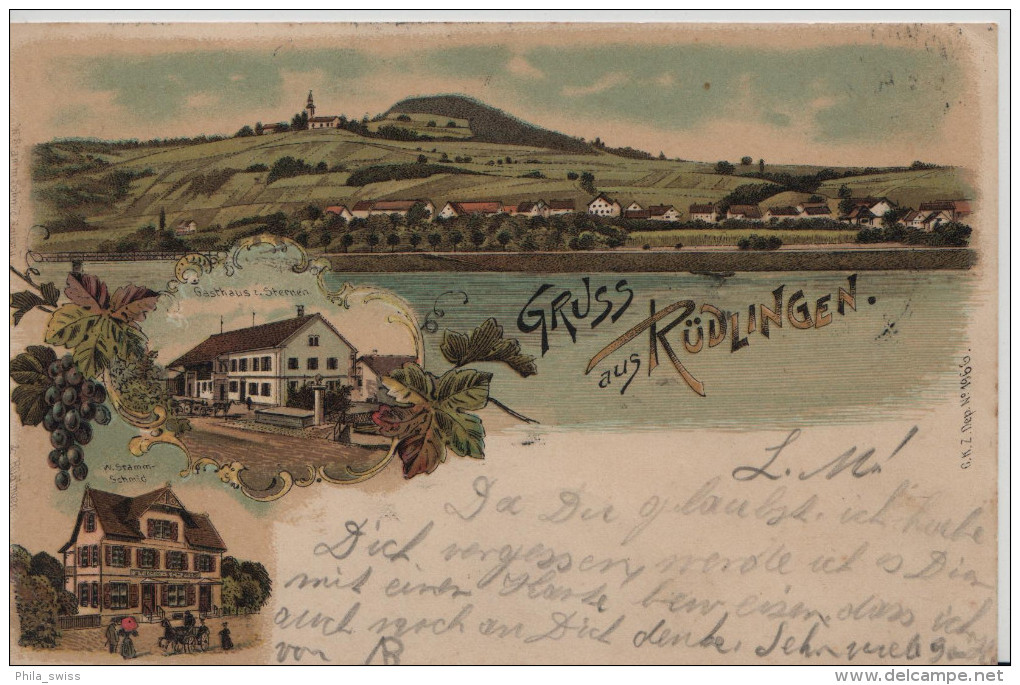 Gasthaus z. Sternen
GRUSS
aus RÜDLINGEN.
W. Stamm-
Schmid
G.K.Z. Dep. No 1966.
L. M!
Da Du glaubst, ich habe
Dich vergessen, werde ich es Dir
mit einer Karte beweisen, dass ich
auch noch an Dich denke. Sehr viele
von
Phila_swiss
delcampe.net